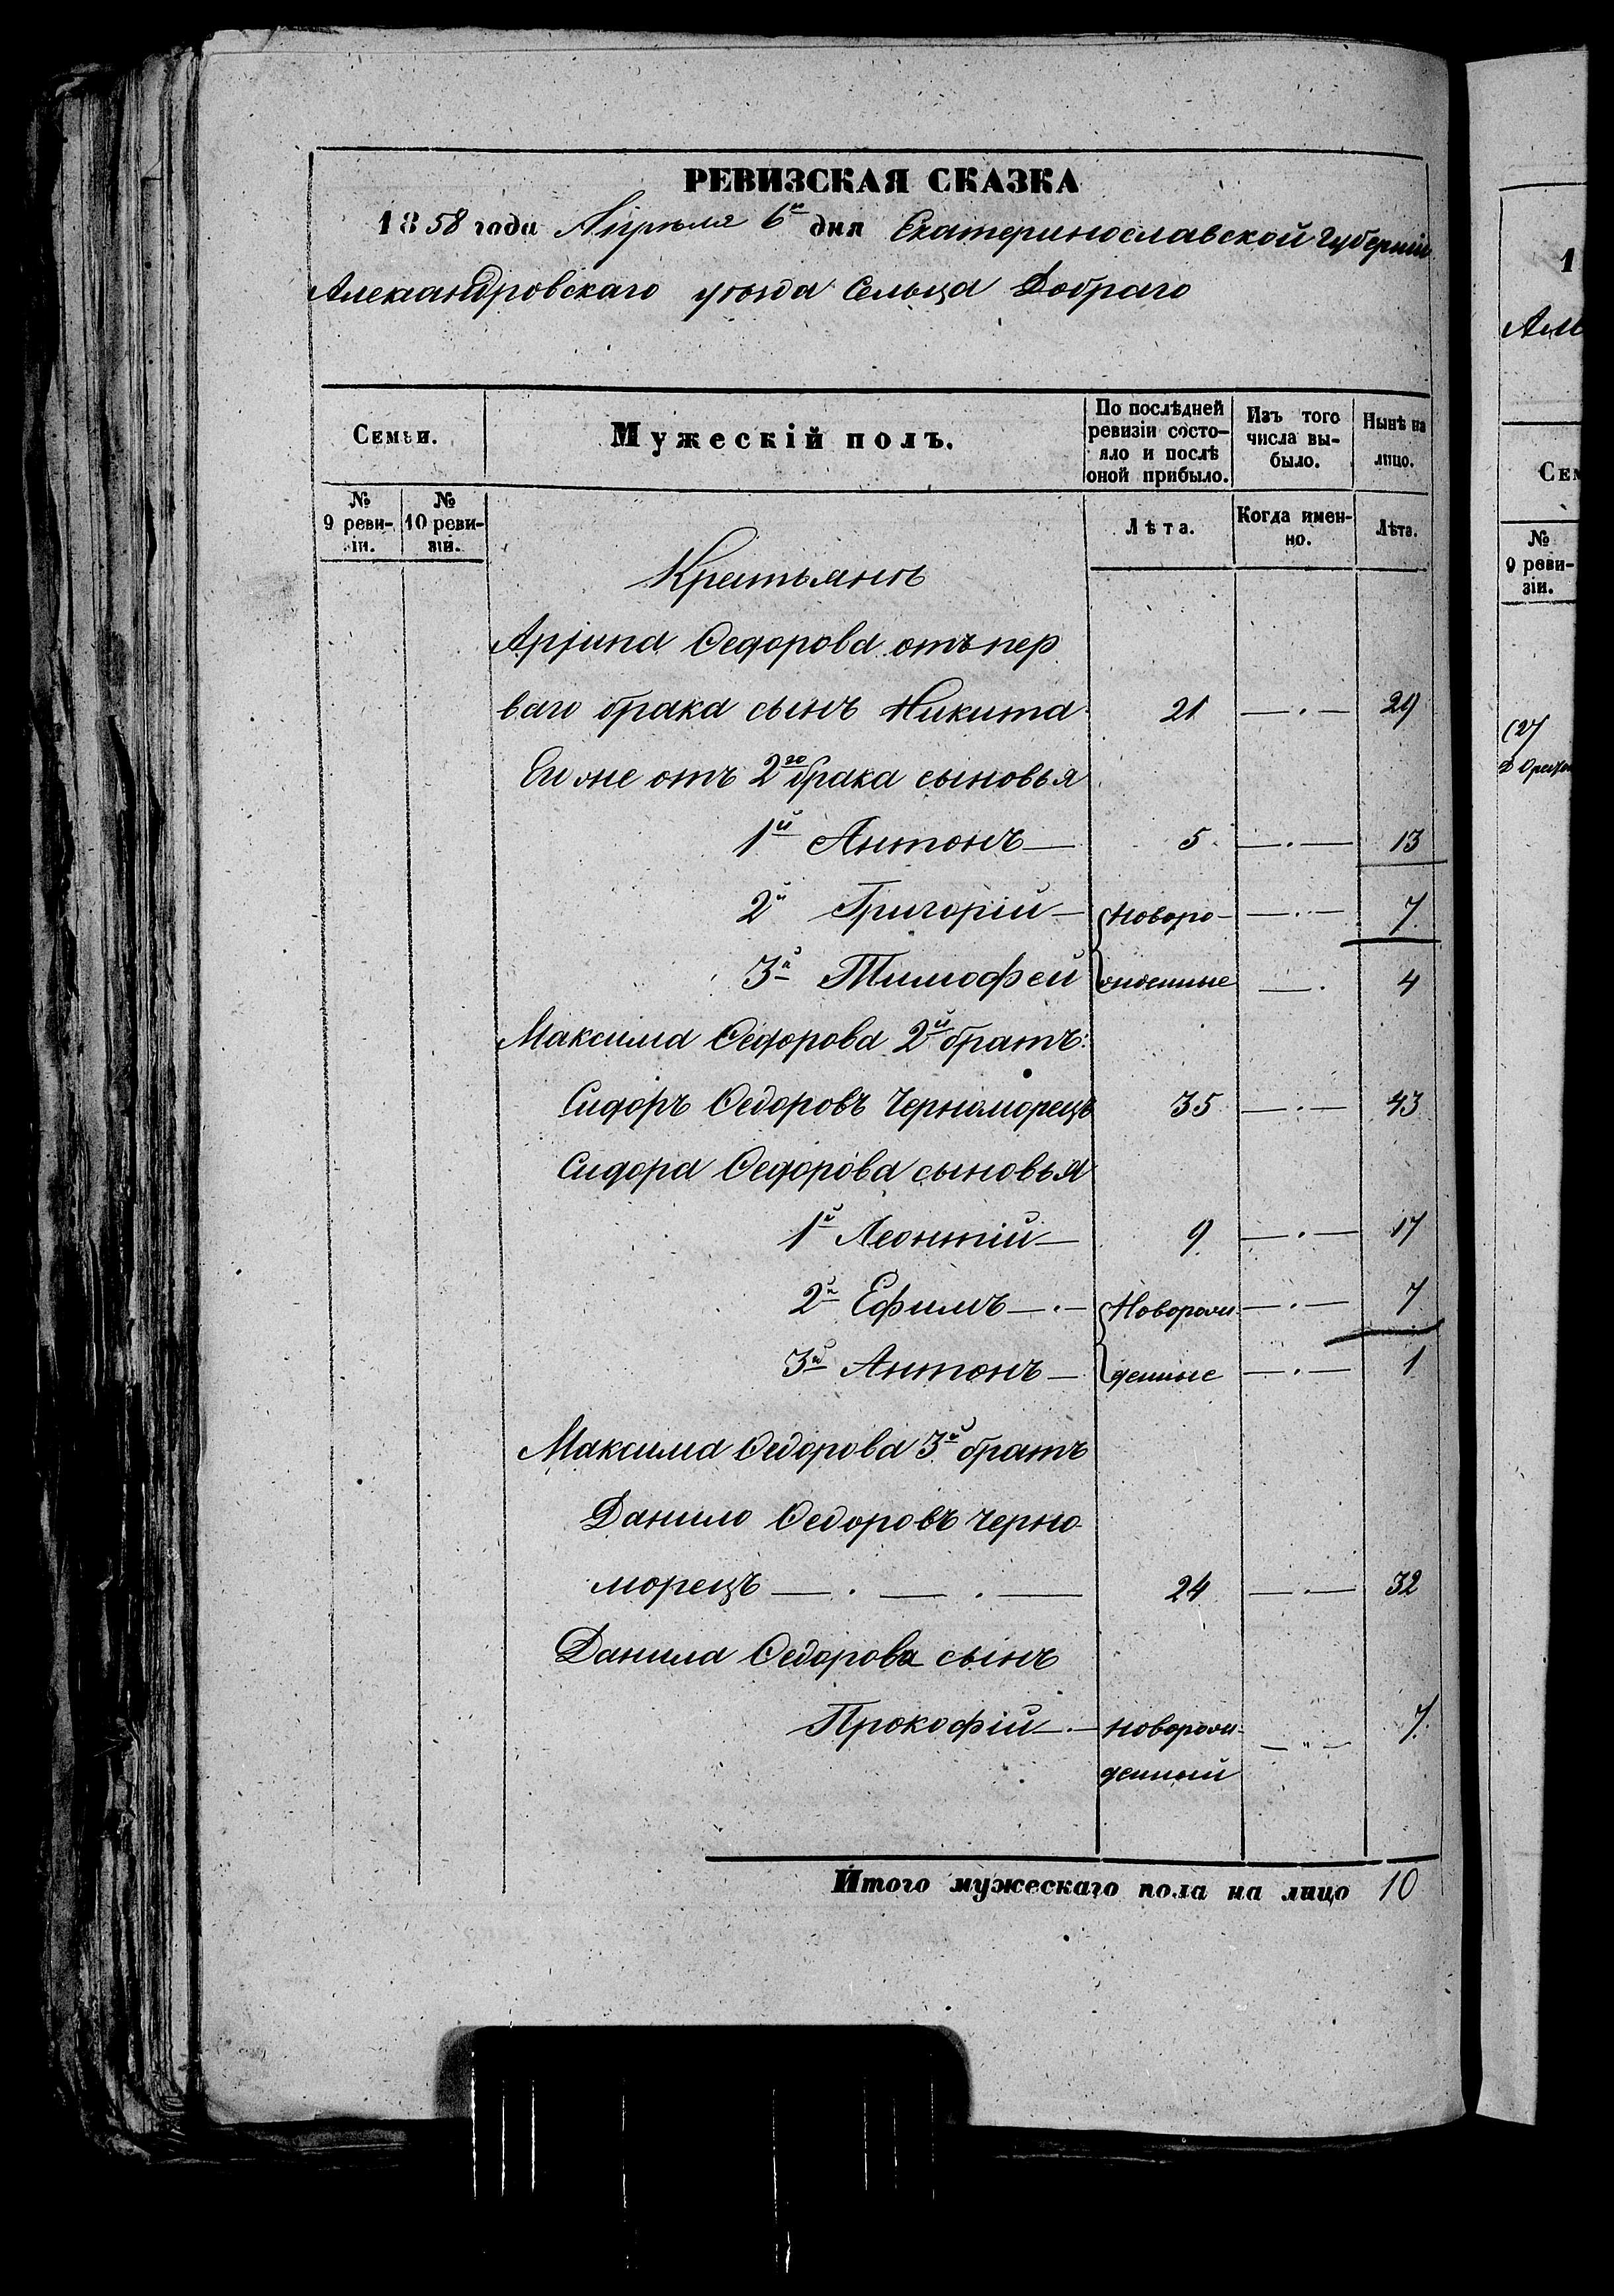 РЕВИЗСКАЯ СКАЗКА
1858 года Апрѣля 6го дня Екатеринославской Губерніи
Александровскаго уѣзда Сельца Добраго
Семьи. Мужескій полъ. По послѣдней ревизіи состояло и послѣ оной прибыло. Изъ того числа выбыло. Нынѣ на лицо.
№ 9 ревизіи. № 10 ревизіи. Лѣта. Когда именно. Лѣта.
Крестьянъ
Федорова отъ пер
ваго брака сынъ Никита 21 — . — 29
Его же отъ 2го брака сыновья
1й Антонъ — 5 — . — 13
2й Григорій — Новоро- — . — 7
3й Тимофей жденные — . 4
Максима Федорова 2й братъ:
Сидоръ Федоровъ Черноморецъ 35 — . — 43
Сидора Федорова сыновья
1й Леонтій — 9 — . — 17
2й Ефимъ — . — Наворож- — . — 7
3й Антонъ — денные — . — 1
Максима Федорова 3й братъ
Данило Федоровъ Черно-
морецъ — . — . — 24 — . — 32
Данила Федорова сынъ
Прокофій — . — новорож- — " — 7
денный
Итого мужескаго пола на лицо 10
1
Але
Сем
№
9 реви-
зіи.
(2)